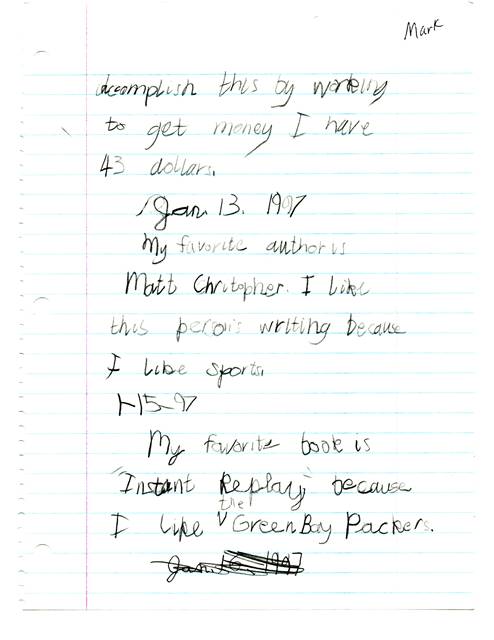 Mark
accomplish this by working
to get money I have
43 dollars.
Jan. 13. 1997
My favorite author is
Matt Chritopher. I like
this perois writing because
I like sports.
1-15-97
My favorite book is
"Instant Replay" because
I like the Green Bay Packers.
Jan. 16, 1997